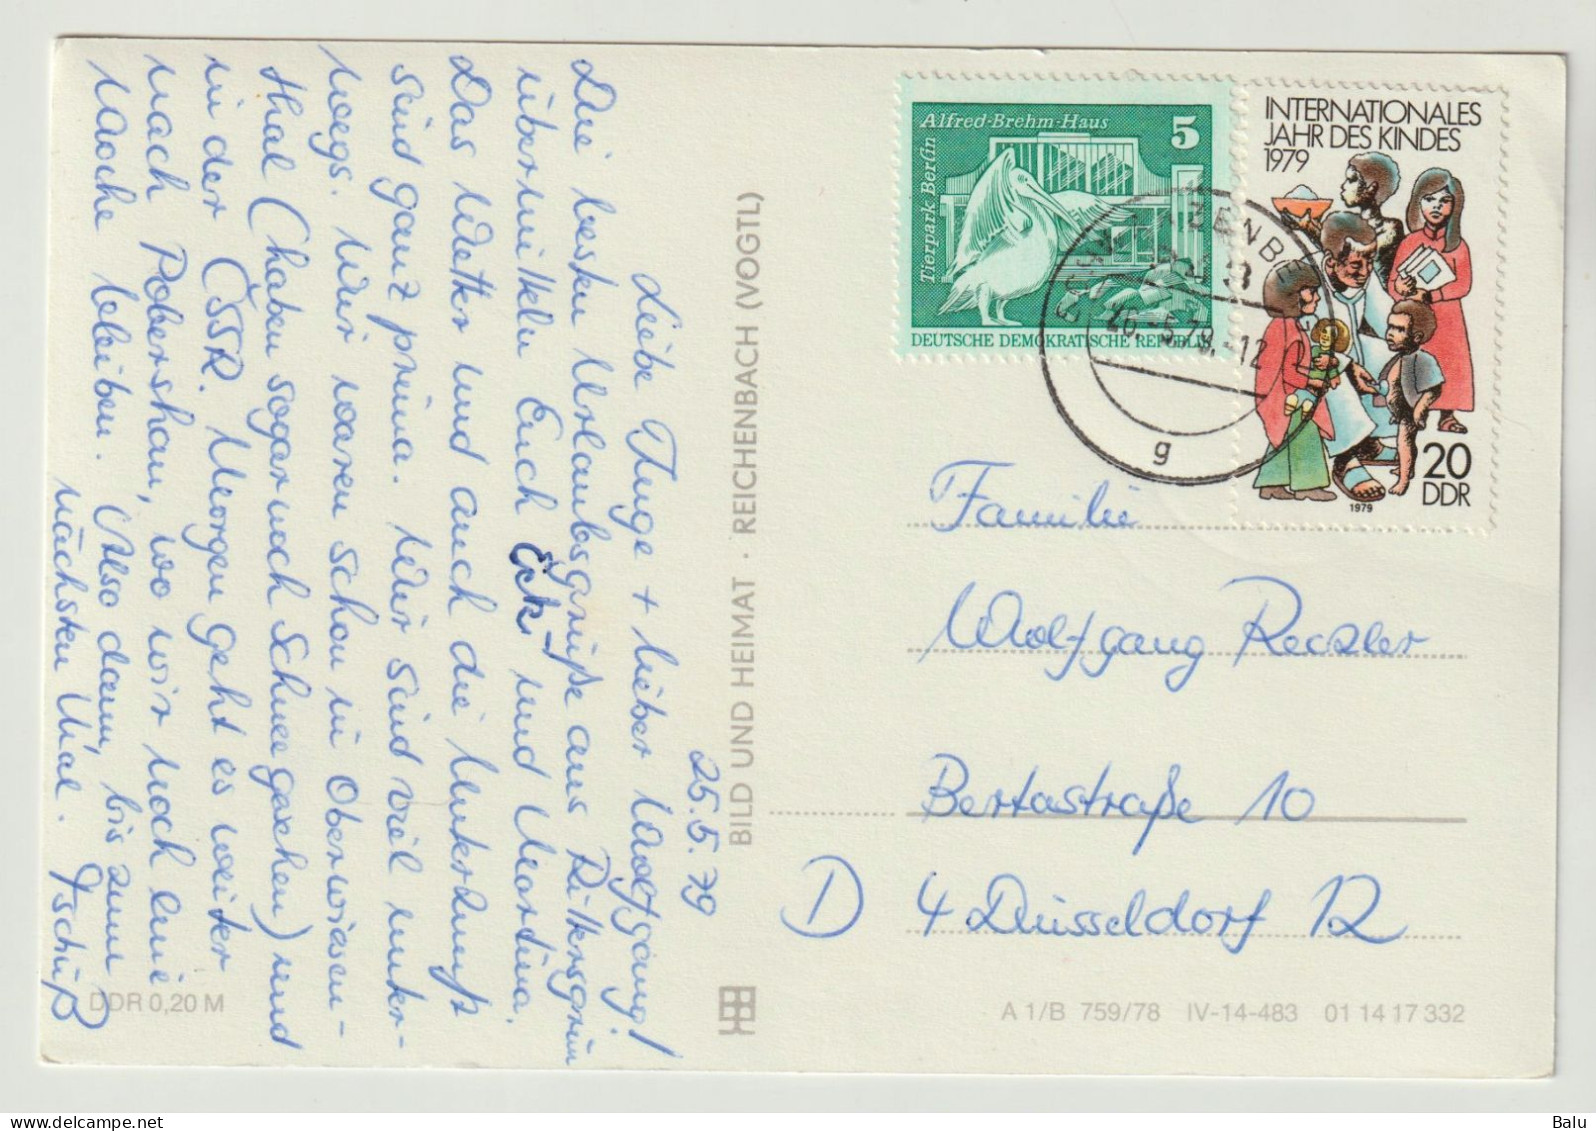 25.5.79
Liebe Inge + lieber Wolfgang!
Die besten Urlaubsgrüße aus Rittersgrün
übermitteln Euch Ecki und Martina.
Das Wetter und auch die Unterkunft
sind ganz prima. Wir sind viel unter-
wegs. Wir waren schon in Oberwiesen-
thal (haben sogar noch Schnee gesehen) und
in der ČSSR. Morgen geht es weiter
nach Pobershau, wo wir noch eine
Woche bleiben. Also dann, bis zum
nächsten Mal. Tschüß
DDR 0,20 M
BILD UND HEIMAT · REICHENBACH (VOGTL)
Alfred-Brehm-Haus
5
Tierpark Berlin
DEUTSCHE DEMOKRATISCHE REPUBLIK
INTERNATIONALES
JAHR DES KINDES
1979
20
DDR
1979
26.-5.79.-12
g
Familie
Wolfgang
Bertastraße 10
D 4 Düsseldorf 12
A 1/B 759/78 IV-14-483 01 14 17 332
Balu